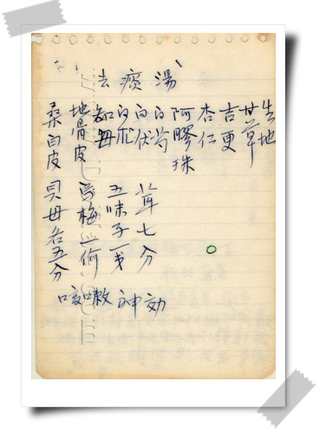 去痰湯
生地
甘草
吉更
杏仁
阿膠珠
白芍
白伏
茸七分
白朮
五味子一戔
知母
地骨皮
烏梅一
桑白皮
貝母各五分
咳嗽神効